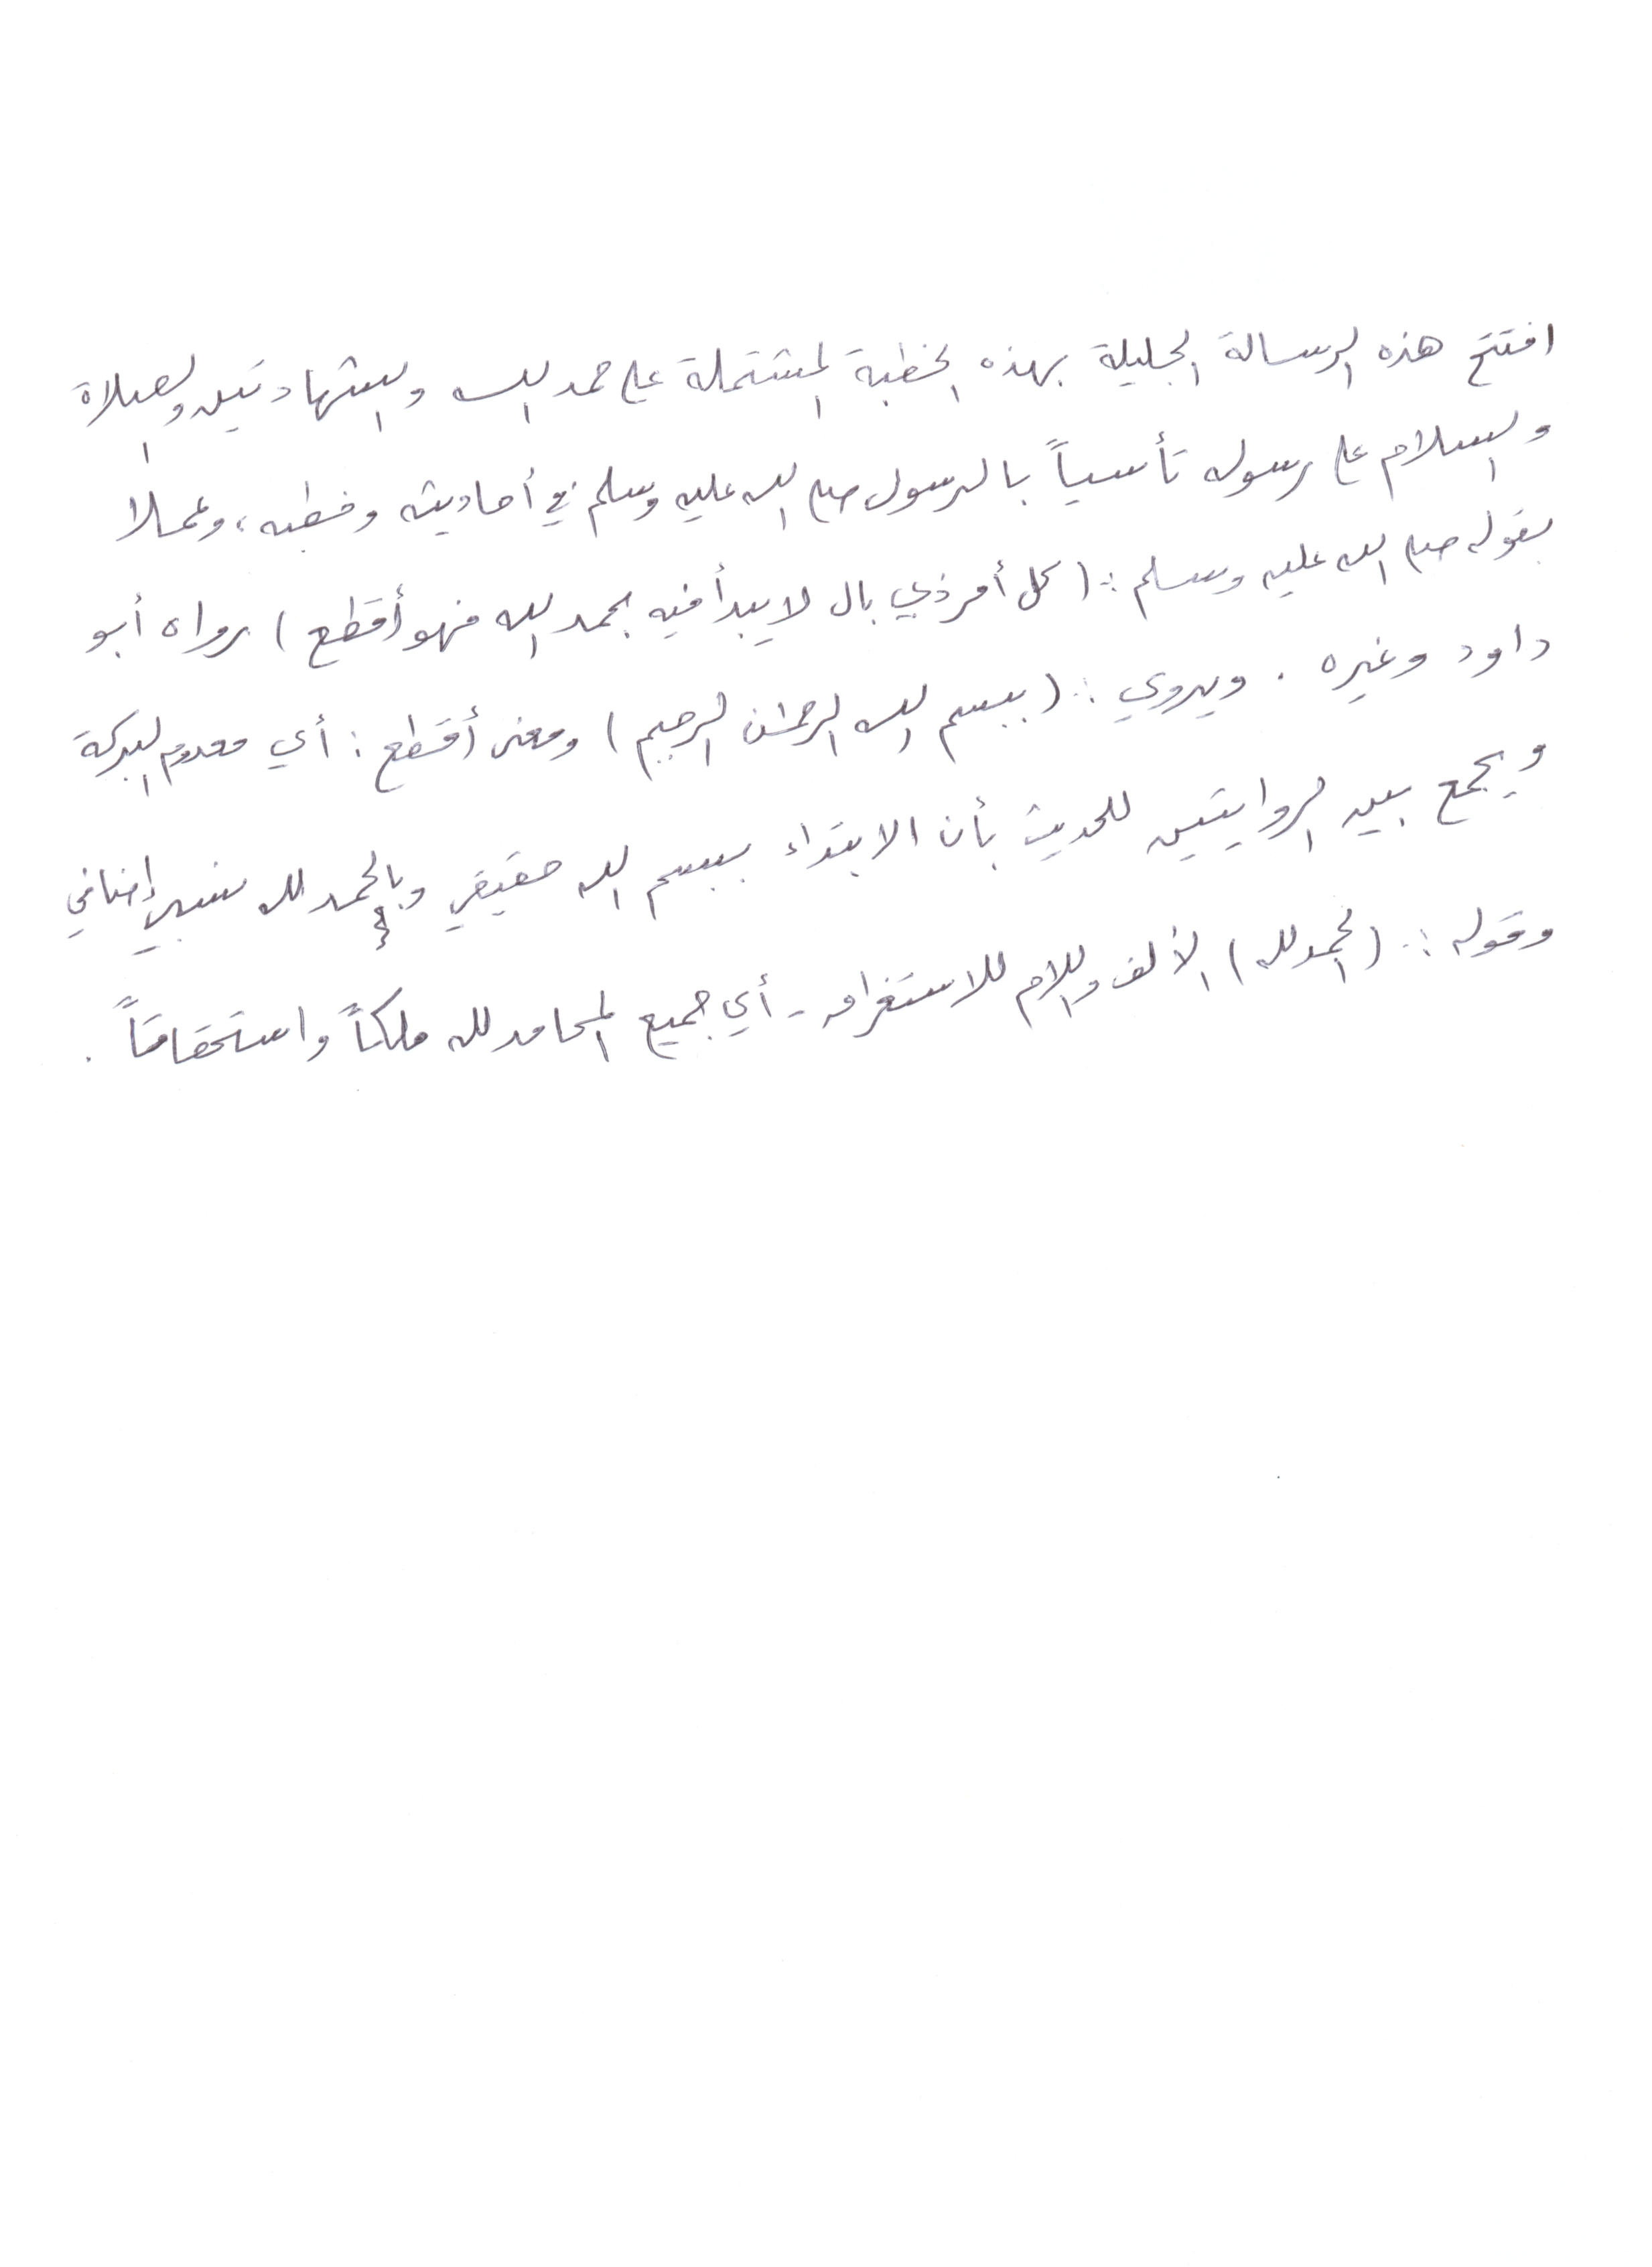 افتتح هذه الرسالة الجليلة بهذه الخطبة المشتملة على حمد الله والشهادتين والصلاة
والسلام على رسوله تأسياً بالرسول صلى الله عليه وسلم في أحاديثه وخطبه، وعملا
بقوله صلى الله عليه وسلم : (كل أمر ذي بال لا يبدأ فيه بحمد الله فهو أقطع) رواه أبو
داود وغيره . ويروي : (ببسم الله الرحمن الرحيم) ومعنى أقطع : أي معدوم البركة
ويجمع بين الروايتين للحديث بأن الابتداء ببسم الله حقيقي وبالحمد لله نسبي إضافي
وقوله : (الحمد لله) الألف واللام للاستغراق - أي جميع المحامد لله ملكاً واستحقاقاً .